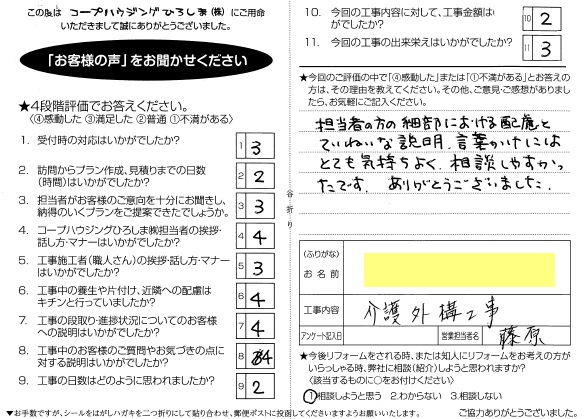 この度は コープハウジングひろしま(株) にご用命
いただきまして誠にありがとうございました。
「お客様の声」をお聞かせください
★4段階評価でお答えください。
〈④感動した ③満足した ②普通 ①不満がある〉
1. 受付時の対応はいかがでしたか?
1 3
2. 訪問からプラン作成、見積りまでの日数
(時間)はいかがでしたか?
2 2
3. 担当者がお客様のご意向を十分にお聞きし、
納得のいくプランをご提案できたでしょうか。
3 3
4. コープハウジングひろしま㈱担当者の挨拶・
話し方・マナーはいかがでしたか?
4 4
5. 工事施工者(職人さん)の挨拶・話し方・マナー
はいかがでしたか?
5 3
6. 工事中の養生や片付け、近隣への配慮は
キチンと行っていましたか?
6 4
7. 工事の段取り・進捗状況についてのお客様
への説明はいかがでしたか?
7 4
8. 工事中のお客様のご質問やお気づきの点に
対する説明はいかがでしたか?
8 4
9. 工事の日数はどのように思われましたか?
9 2
谷折り
10. 今回の工事内容に対して、工事金額はいか
がでしたか?
10 2
11. 今回の工事の出来栄えはいかがでしたか?
11 3
★今回のご評価の中で「④感動した」または「①不満がある」とお答えの
方は、その理由を教えてください。その他、ご意見・ご感想がありまし
たら、お気軽にご記入ください。
担当者の方の細部における配慮と
ていねいな説明、言葉かけには
とても気持ちよく、相談しやすかっ
たです。ありがとうございました。
(ふりがな)
お名前
工事内容
介護外構工事
アンケート記入日
営業担当者名
藤原
★今後リフォームをされる時、または知人にリフォームをお考えの方が
いらっしゃる時、弊社に相談(紹介)しようと思われますか?
〈該当するものに○をお付けください〉
1.相談しようと思う 2.わからない 3.相談しない
▼お手数ですが、シールをはがしハガキを二つ折りにして貼り合わせ、郵便ポストに投函してくださいますようお願いいたします。
ご協力ありがとうございました。